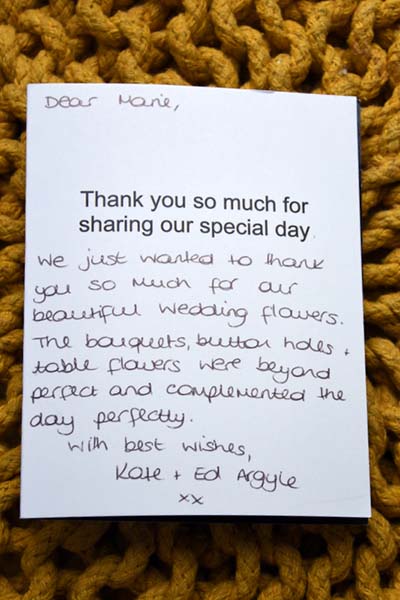 Dear Marie,
Thank you so much for
sharing our special day
We just wanted to thank
you so much for our
beautiful wedding flowers.
The bouquets, button holes +
table flowers were beyond
perfect and complemented the
day perfectly.
With best wishes,
Kate + Ed Argyle
xx